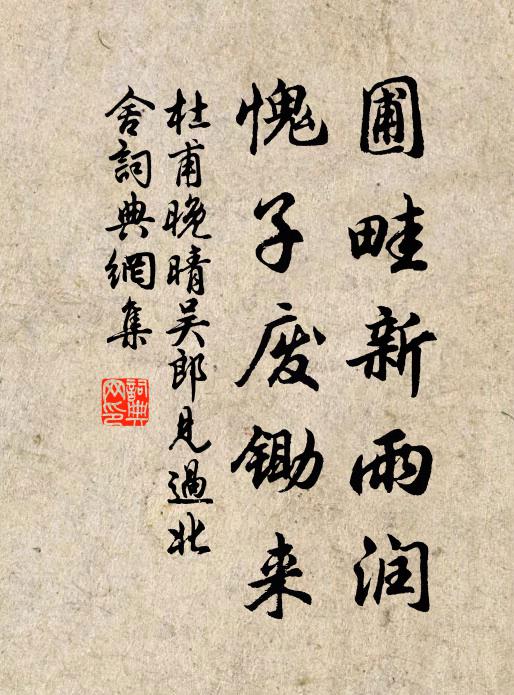 圃畦新雨润
愧子废锄来
杜甫晚晴吴郎见過北
舍詞典網集
詞典網印